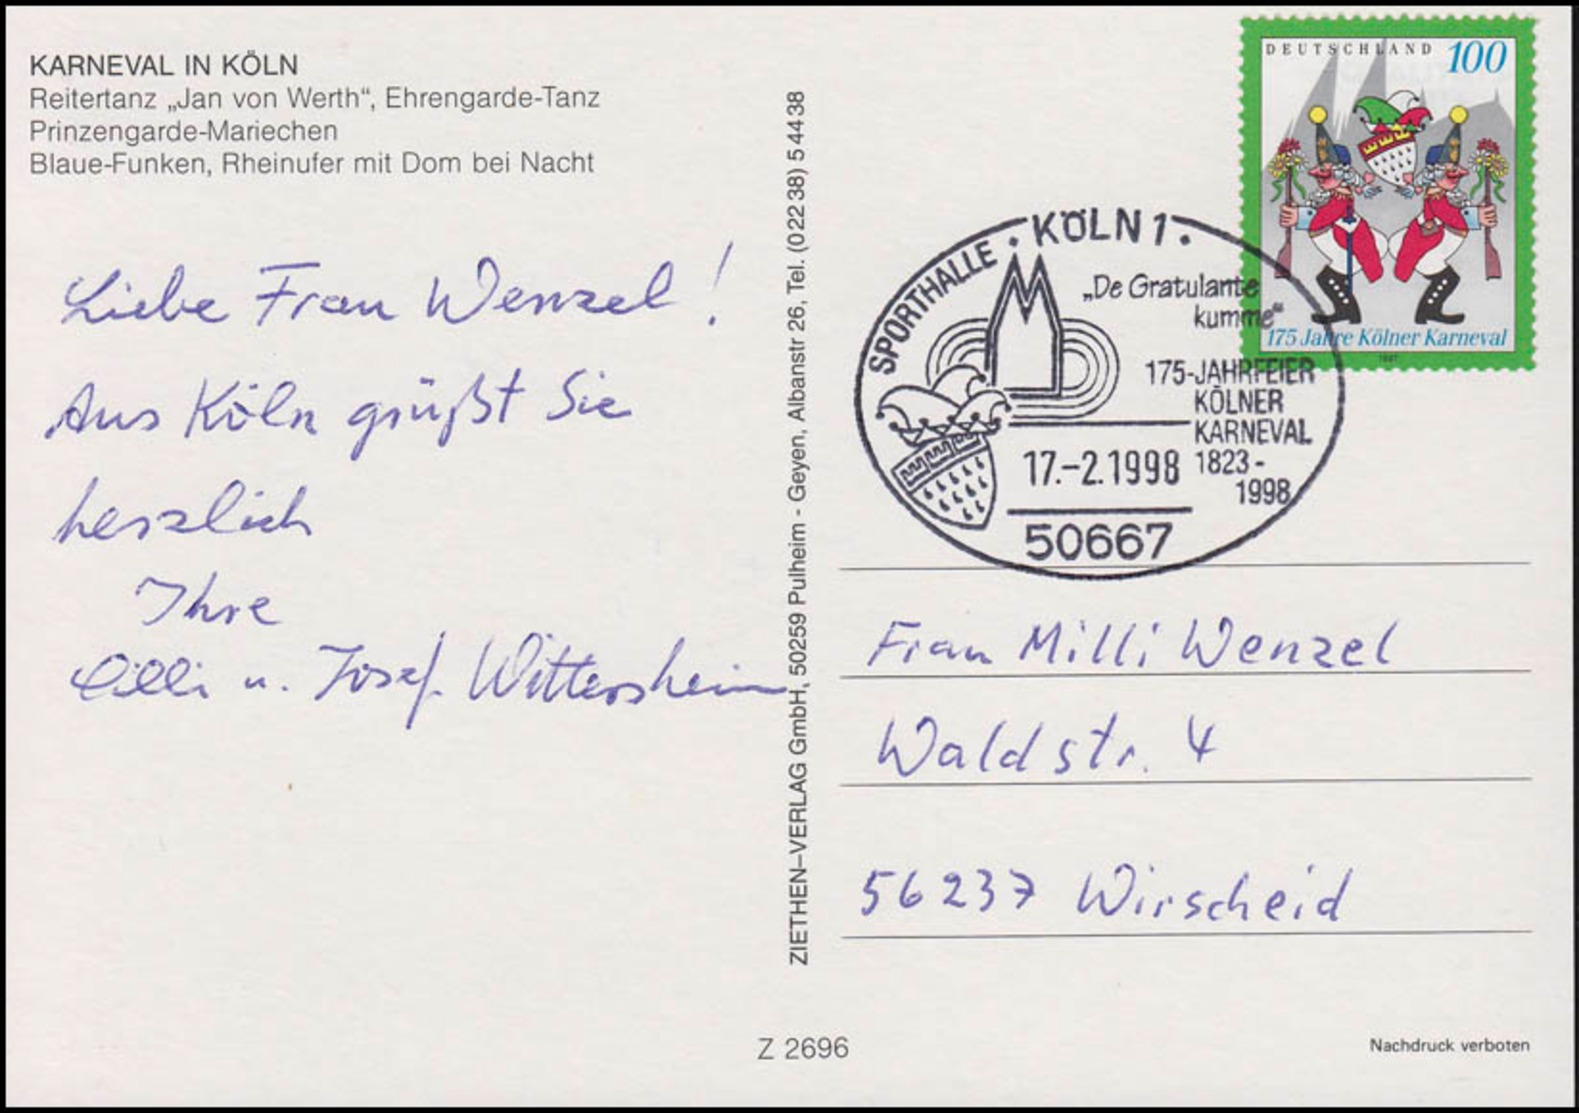 KARNEVAL IN KÖLN
Reitertanz „Jan von Werth“, Ehrengarde-Tanz
Prinzengarde-Mariechen
Blaue-Funken, Rheinufer mit Dom bei Nacht
Liebe Frau Wenzel!
Aus Köln grüßt Sie
herzlich
Ihre
Cilli u. Josef Wittersheim
ZIETHEN–VERLAG GmbH, 50259 Pulheim - Geyen, Albanstr 26, Tel. (02238) 54438
DEUTSCHLAND 100
175 Jahre Kölner Karneval
1997
SPORTHALLE · KÖLN 1 ·
„De Gratulante
kumme“
175-JAHRFEIER
KÖLNER
KARNEVAL
1823-
1998
17.–2.1998
50667
Frau Milli Wenzel
Waldstr. 4
56237 Wirscheid
Z 2696
Nachdruck verboten